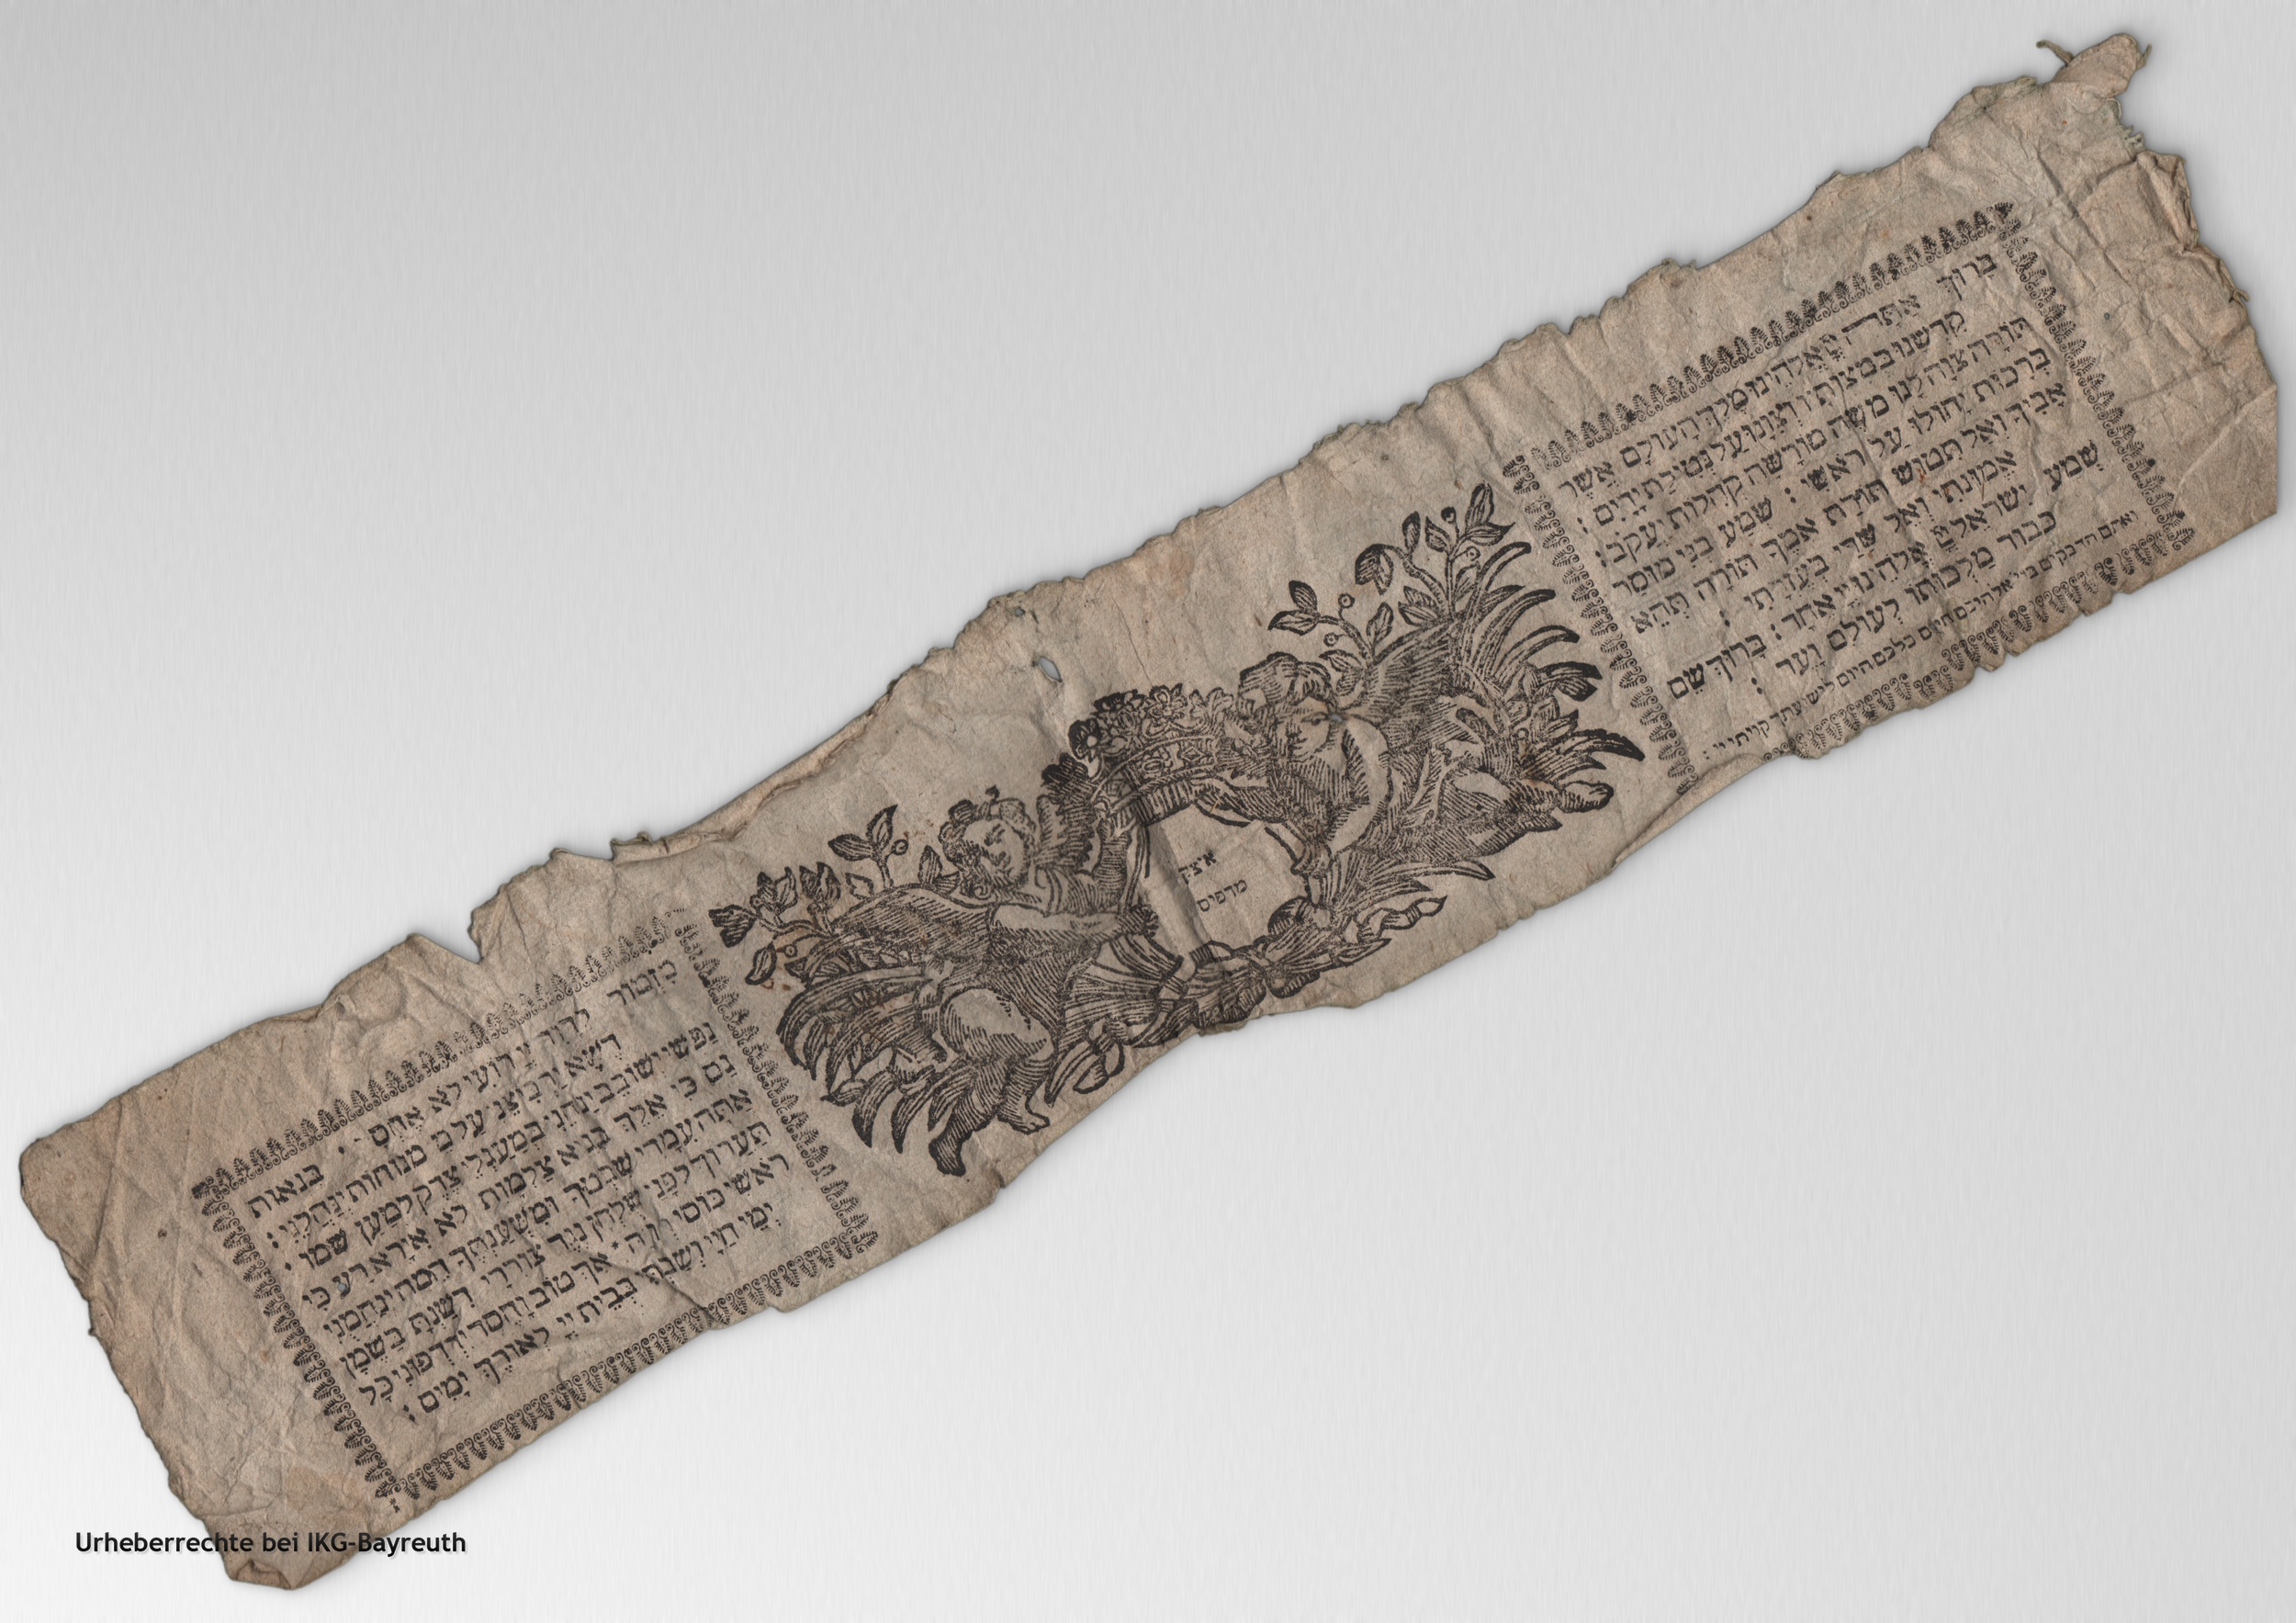 בָּרוּךְ אַתָּה יְיָ אֱלֹהֵינוּ מֶלֶךְ הָעוֹלָם אֲשֶׁר
קִדְּשָׁנוּ בְּמִצְוֹתָיו וְצִוָּנוּ עַל נְטִילַת יָדָיִם :
תּוֹרָה צִוָּה לָנוּ מֹשֶׁה מוֹרָשָׁה קְהִלּוֹת יַעֲקֹב :
בְּרָכוֹת יָחוּלוּ עַל רֹאשִׁי : שְׁמַע בְּנִי מוּסַר
אָבִיךָ וְאַל תִּטּוֹשׁ תּוֹרַת אִמֶּךָ תּוֹרָה תְּהֵא
אֱמוּנָתִי וְאֵל שַׁדַּי בְּעֶזְרָתִי :
שְׁמַע יִשְׂרָאֵל יְיָ אֱלֹהֵינוּ יְיָ אֶחָד : בָּרוּךְ שֵׁם
כְּבוֹד מַלְכוּתוֹ לְעוֹלָם וָעֶד :
ואתם הדבקים ביי אלהיכם חיים כלכם היום לישועתך קויתי יי :
מדפיס
מִזְמוֹר לְדָוִד יְיָ רוֹעִי לֹא אֶחְסָר : בִּנְאוֹת
דֶּשֶׁא יַרְבִּיצֵנִי עַל מֵי מְנוּחוֹת יְנַהֲלֵנִי :
נַפְשִׁי יְשׁוֹבֵב יַנְחֵנִי בְמַעְגְּלֵי צֶדֶק לְמַעַן שְׁמוֹ :
גַּם כִּי אֵלֵךְ בְּגֵיא צַלְמָוֶת לֹא אִירָא רָע כִּי
אַתָּה עִמָּדִי שִׁבְטְךָ וּמִשְׁעַנְתֶּךָ הֵמָּה יְנַחֲמֻנִי
תַּעֲרוֹךְ לְפָנַי שֻׁלְחָן נֶגֶד צוֹרְרָי דִּשַּׁנְתָּ בַשֶּׁמֶן
רֹאשִׁי כּוֹסִי רְוָיָה · אַךְ טוֹב וָחֶסֶד יִרְדְּפוּנִי כָּל
יְמֵי חַיָּי וְשַׁבְתִּי בְּבֵית יְיָ לְאוֹרֶךְ יָמִים :
Urheberrechte bei IKG-Bayreuth